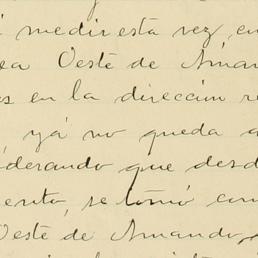 medir esta vez, en
ea Oeste de Aman
es en la dirección r
, ya no queda a
derando que desd
ento, se tomó com
Oeste de Amando,